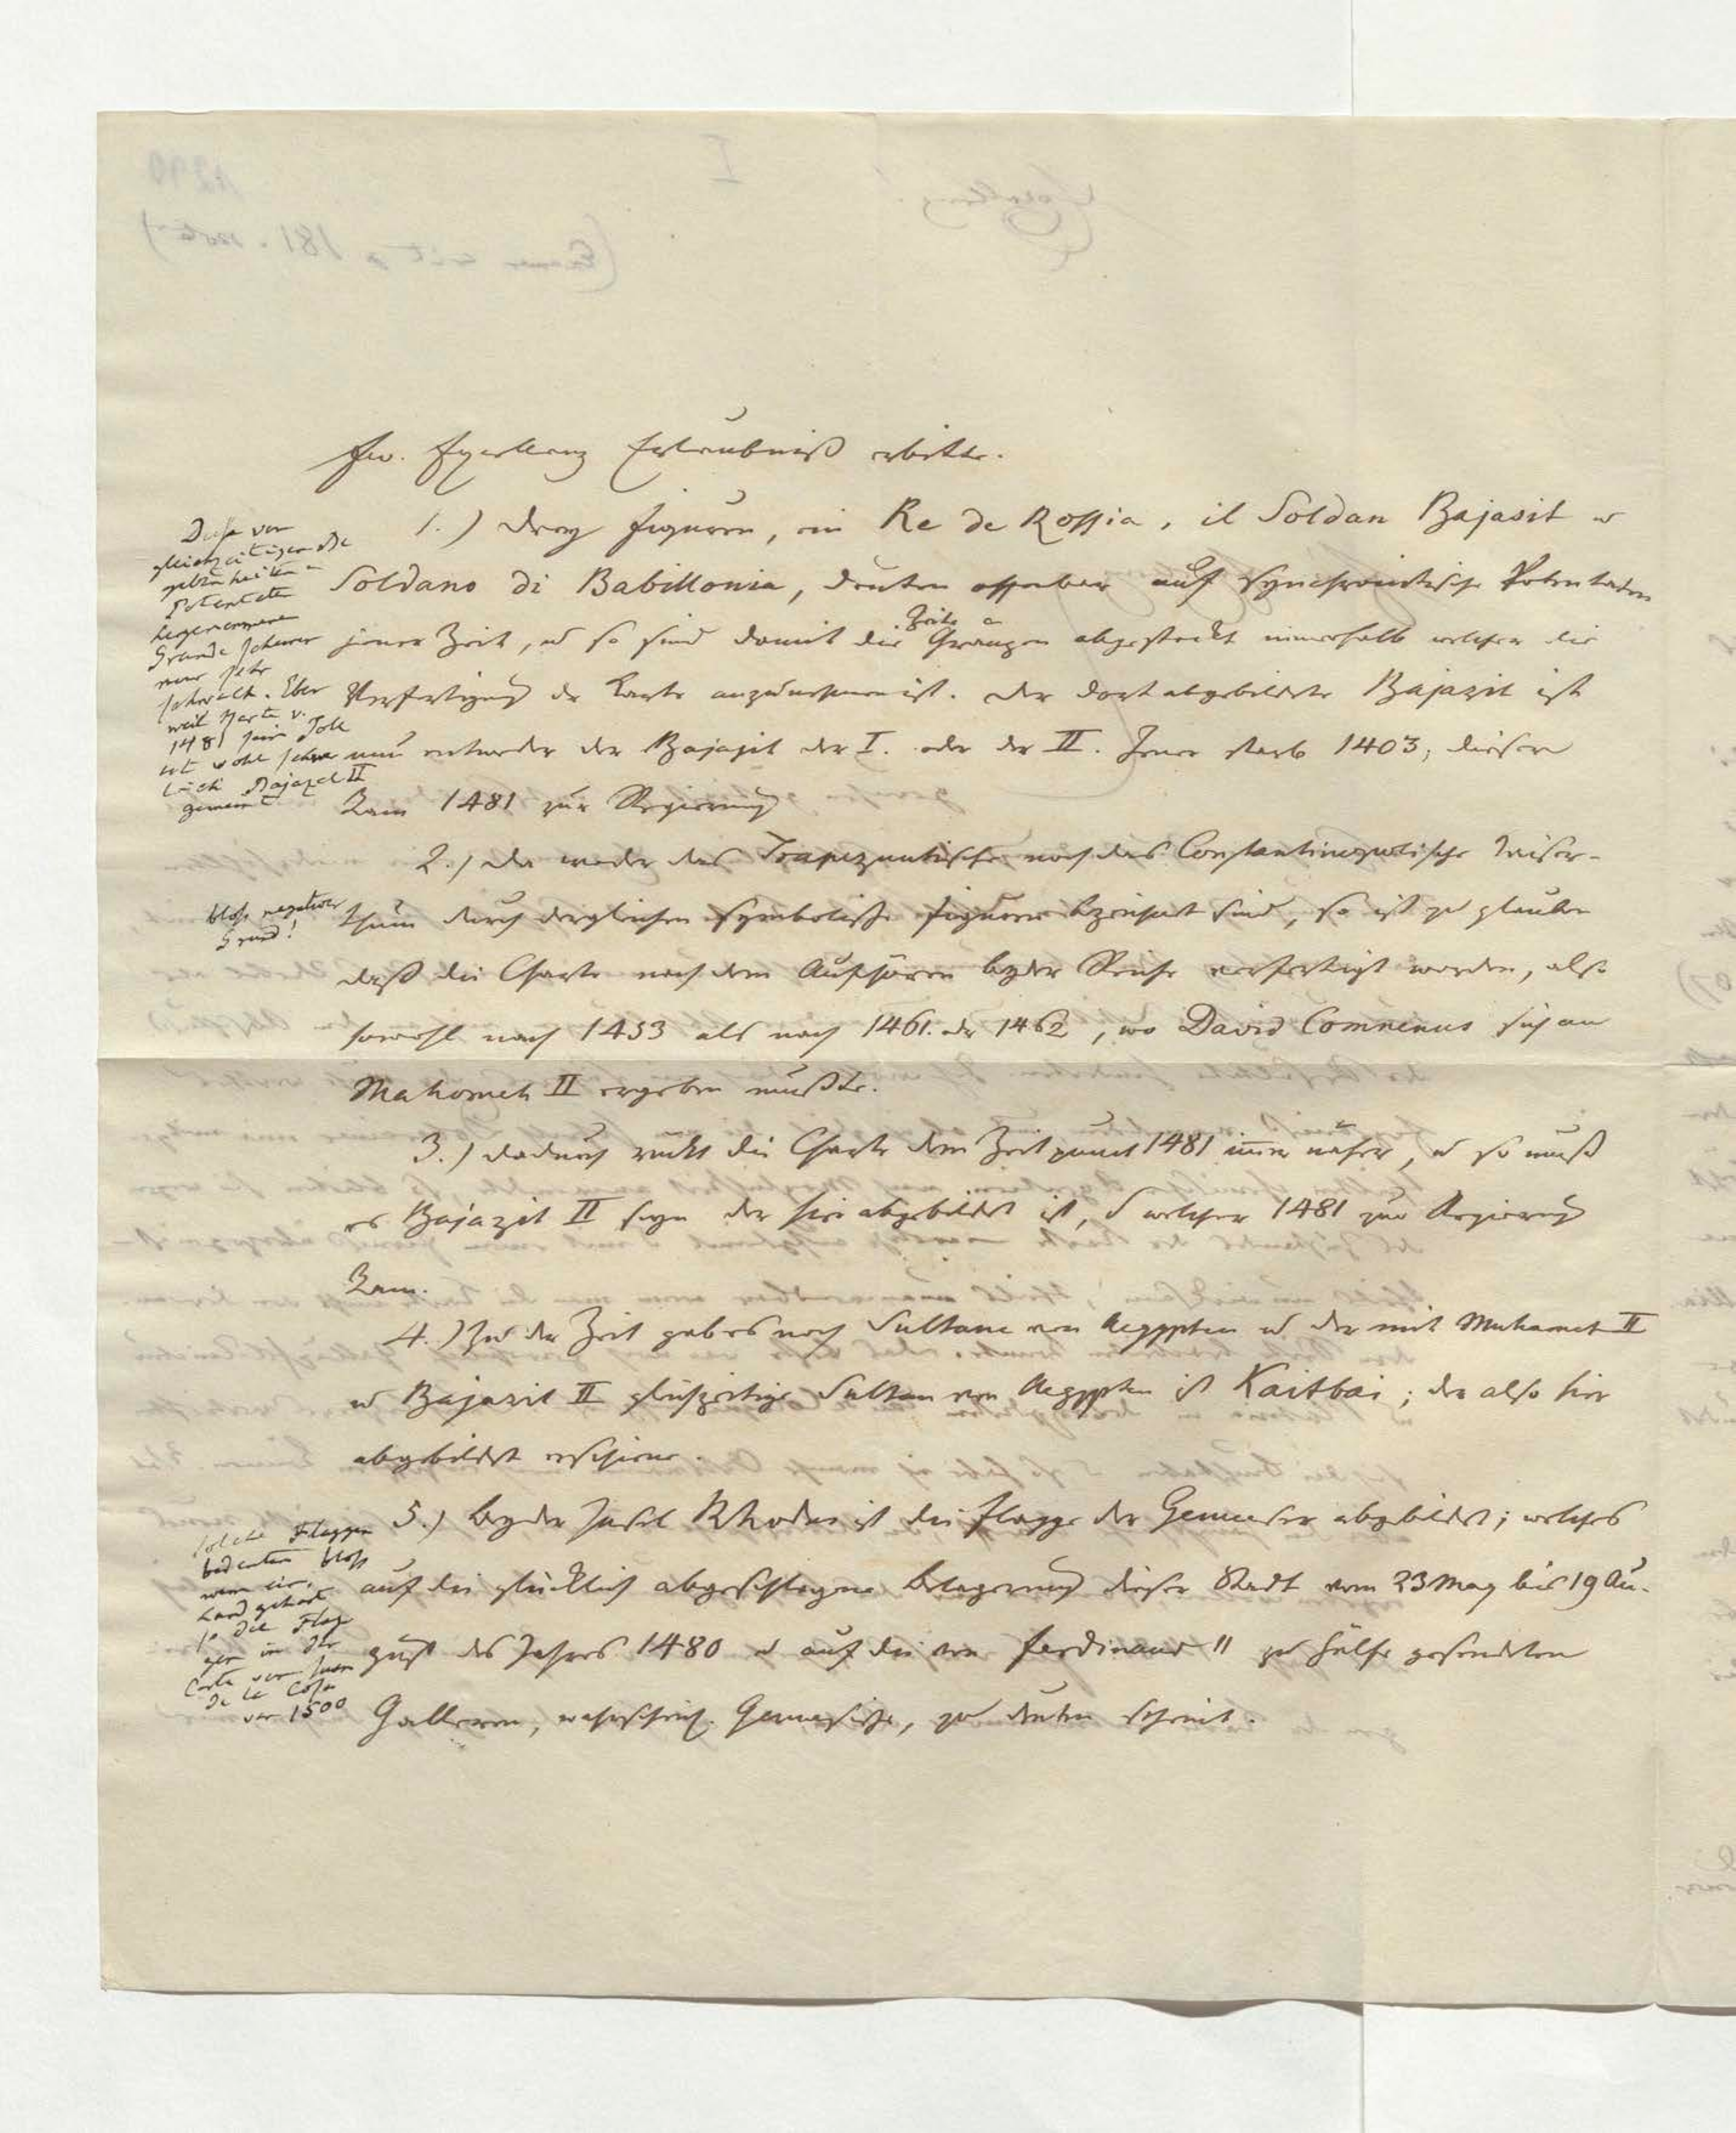 Ew. Excellenz Erlaubniß erbitte.
1.) Drey Figuren, ein Re de Rossia, il Soldan Bajasit u
Soldano di Babillonia, deuten offenbar auf synchronistische Potentaten
jener Zeit, u so sind damit die Zeit Gränzen abgesteckt innerhalb welcher die
Verfertigung der Karte anzunehmen ist. Der dort abgebildete Bajazit ist
nun entweder der Bajazit der I. oder der II. Jener starb 1403; dieser
kam 1481 zur Regierung
Diese von
gleichzeitigen
gebenheiten u
Potentaten
hergenommene
Gründe scheinen
mir sehr
schwach. Aber
weil
1481
ist wohl schon
Bajazet II
gemeint
2.) Da weder das Trapezuntische noch das Constantinopolitische Kaiser-
thum durch dergleichen symbolische Figuren bezeichnet sind, so ist zu glauben
daß die Charte nach dem Aufhören beyder Reiche verfertigt worden, also
sowohl nach 1453 als nach 1461. oder 1462, wo David Comnenus sich an
Mahomet II ergeben mußte.
bloß negativer
Grund!
3.) Dadurch rückt die Charte dem Zeitpunct 1481 immer näher, u so muß
es Bajazit II seyn der hier abgebildet ist, u welcher 1481 zur Regierung
kam.
4.) Zu der Zeit gab es noch Sultane von Aegypten u der mit Muhamet II
u Bajazit II gleichzeitige Sultan von Aegypten ist Kaitbai; der also hier
abgebildet erschiene.
5.) Bey der Insel Rhodus ist die Flagge der Genueser abgebildet; welches
auf die glücklich abgeschlagene Belagerung dieser Stadt vom 23 May bis 19 Au-
gust des Jahres 1480 u auf die von Ferdinand II zu Hülfe gesendeten
Galleeren, wahrscheinl. Genuesische, zu deuten scheint.
solche Flaggen
bedeuten bloß
wem ein
Land gehört
so die Flag
gen in der
Carte von Juan
de la Cosa
von 1500